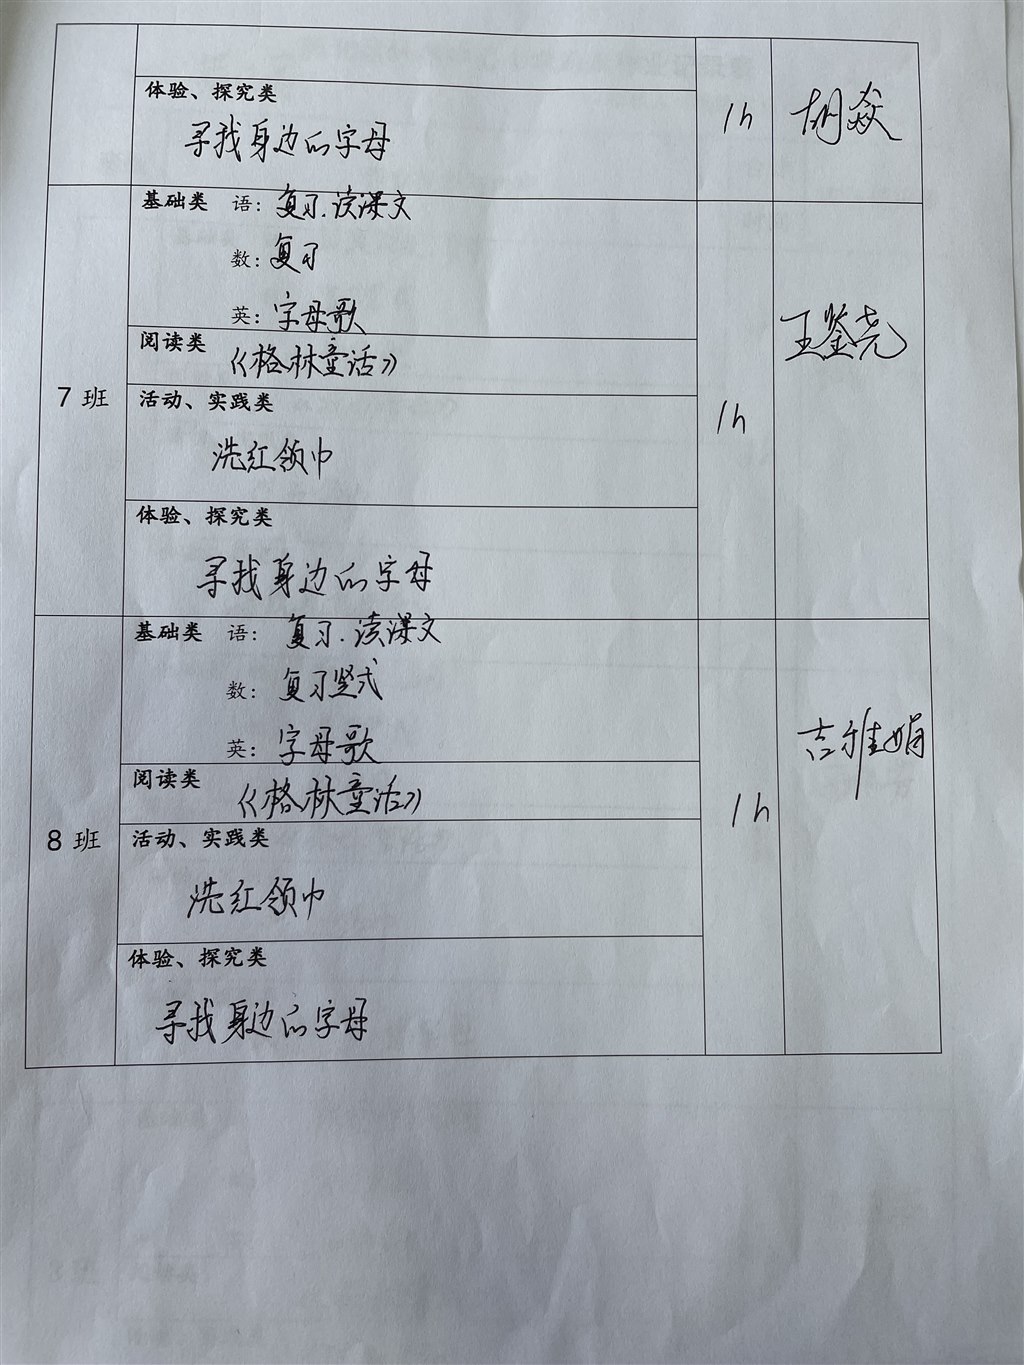 体验、探究类
寻找身边的字母
1h
胡焱
7 班
基础类 语：复习.读课文
数：复习
英：字母歌
阅读类
《格林童话》
活动、实践类
洗红领巾
体验、探究类
寻找身边的字母
1h
王鉴尧
8 班
基础类 语：复习.读课文
数：复习竖式
英：字母歌
阅读类
《格林童话》
活动、实践类
洗红领巾
体验、探究类
寻找身边的字母
1h
吉雅娟